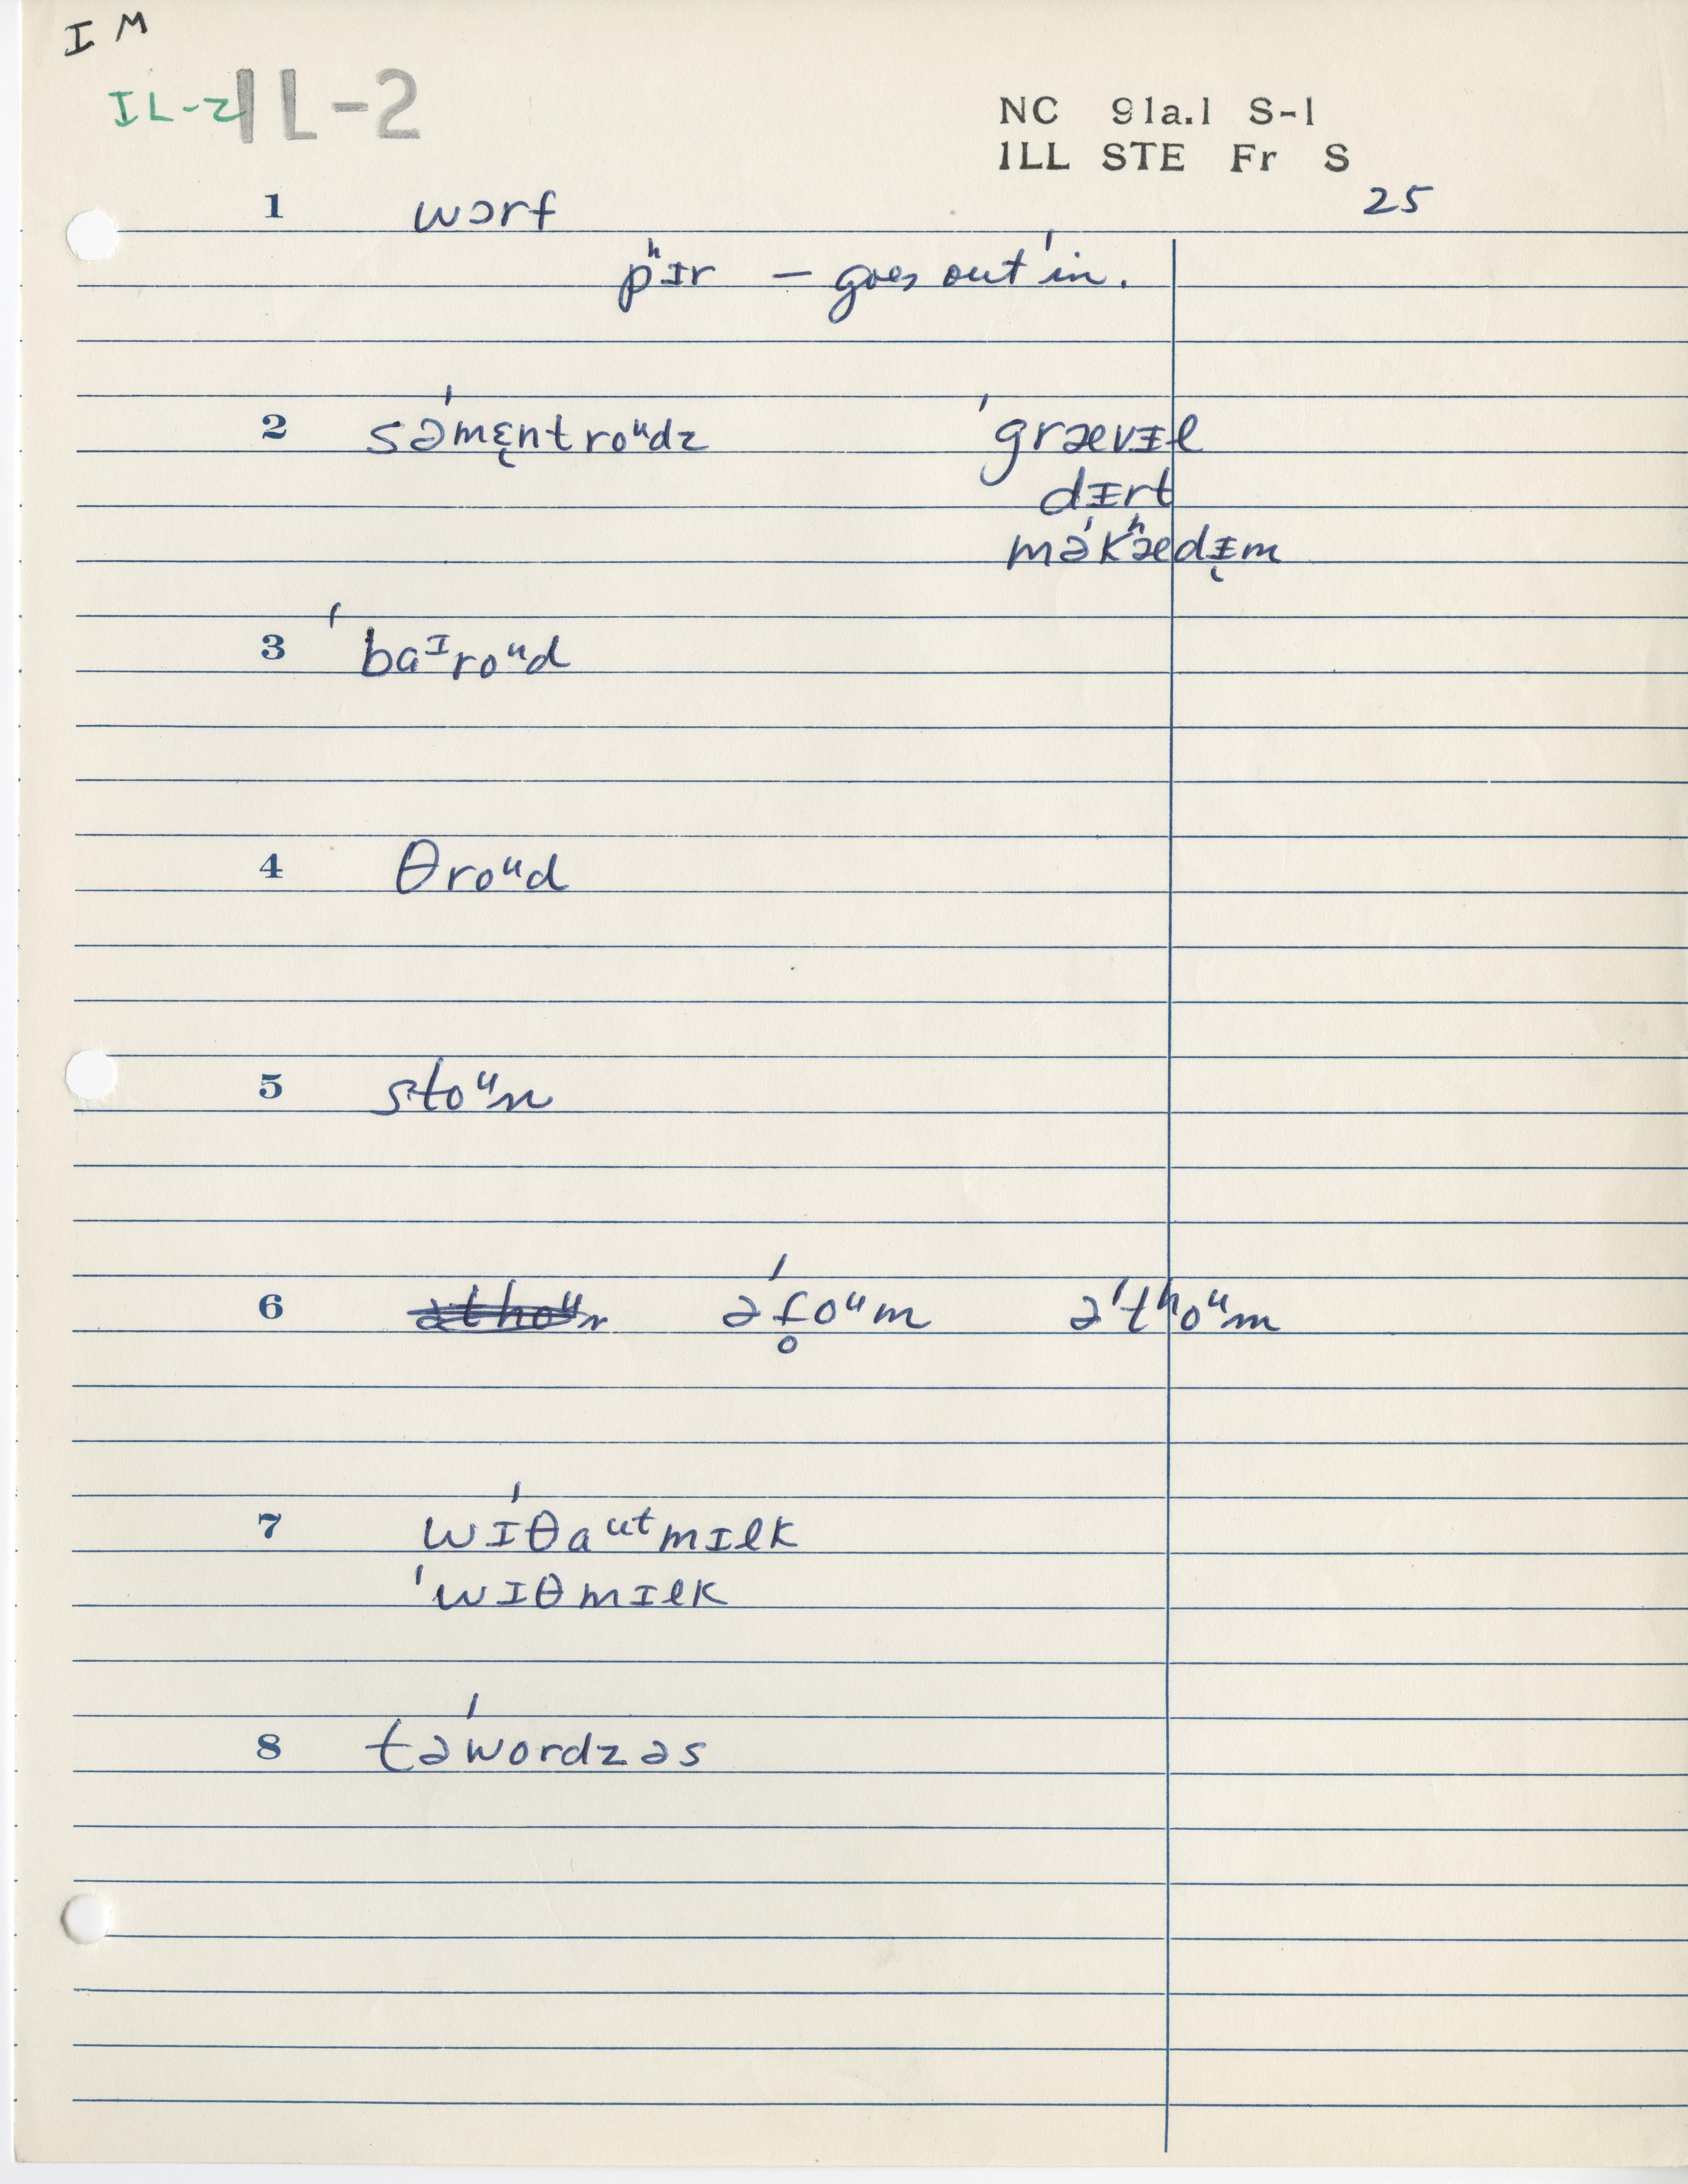 I M
IL-2 IL-2
NC 91a.1 S-1
ILL STE Fr S
25
1 wɔrf
pʰɪr – goes out ˈin.
2 səˈmɛ̨ntroᵘdz ˈgrævɪl
dɪrt
məˈkʰædɪ̨m
3 ˈbaᶦroᵘd
4 θroᵘd
5 stoᵘn
6 əˈf̥oᵘm əˈtʰoᵘm
7 wɪˈθaᵘᵗmɪlk
ˈwɪθmɪlk
8 təˈwordzəs